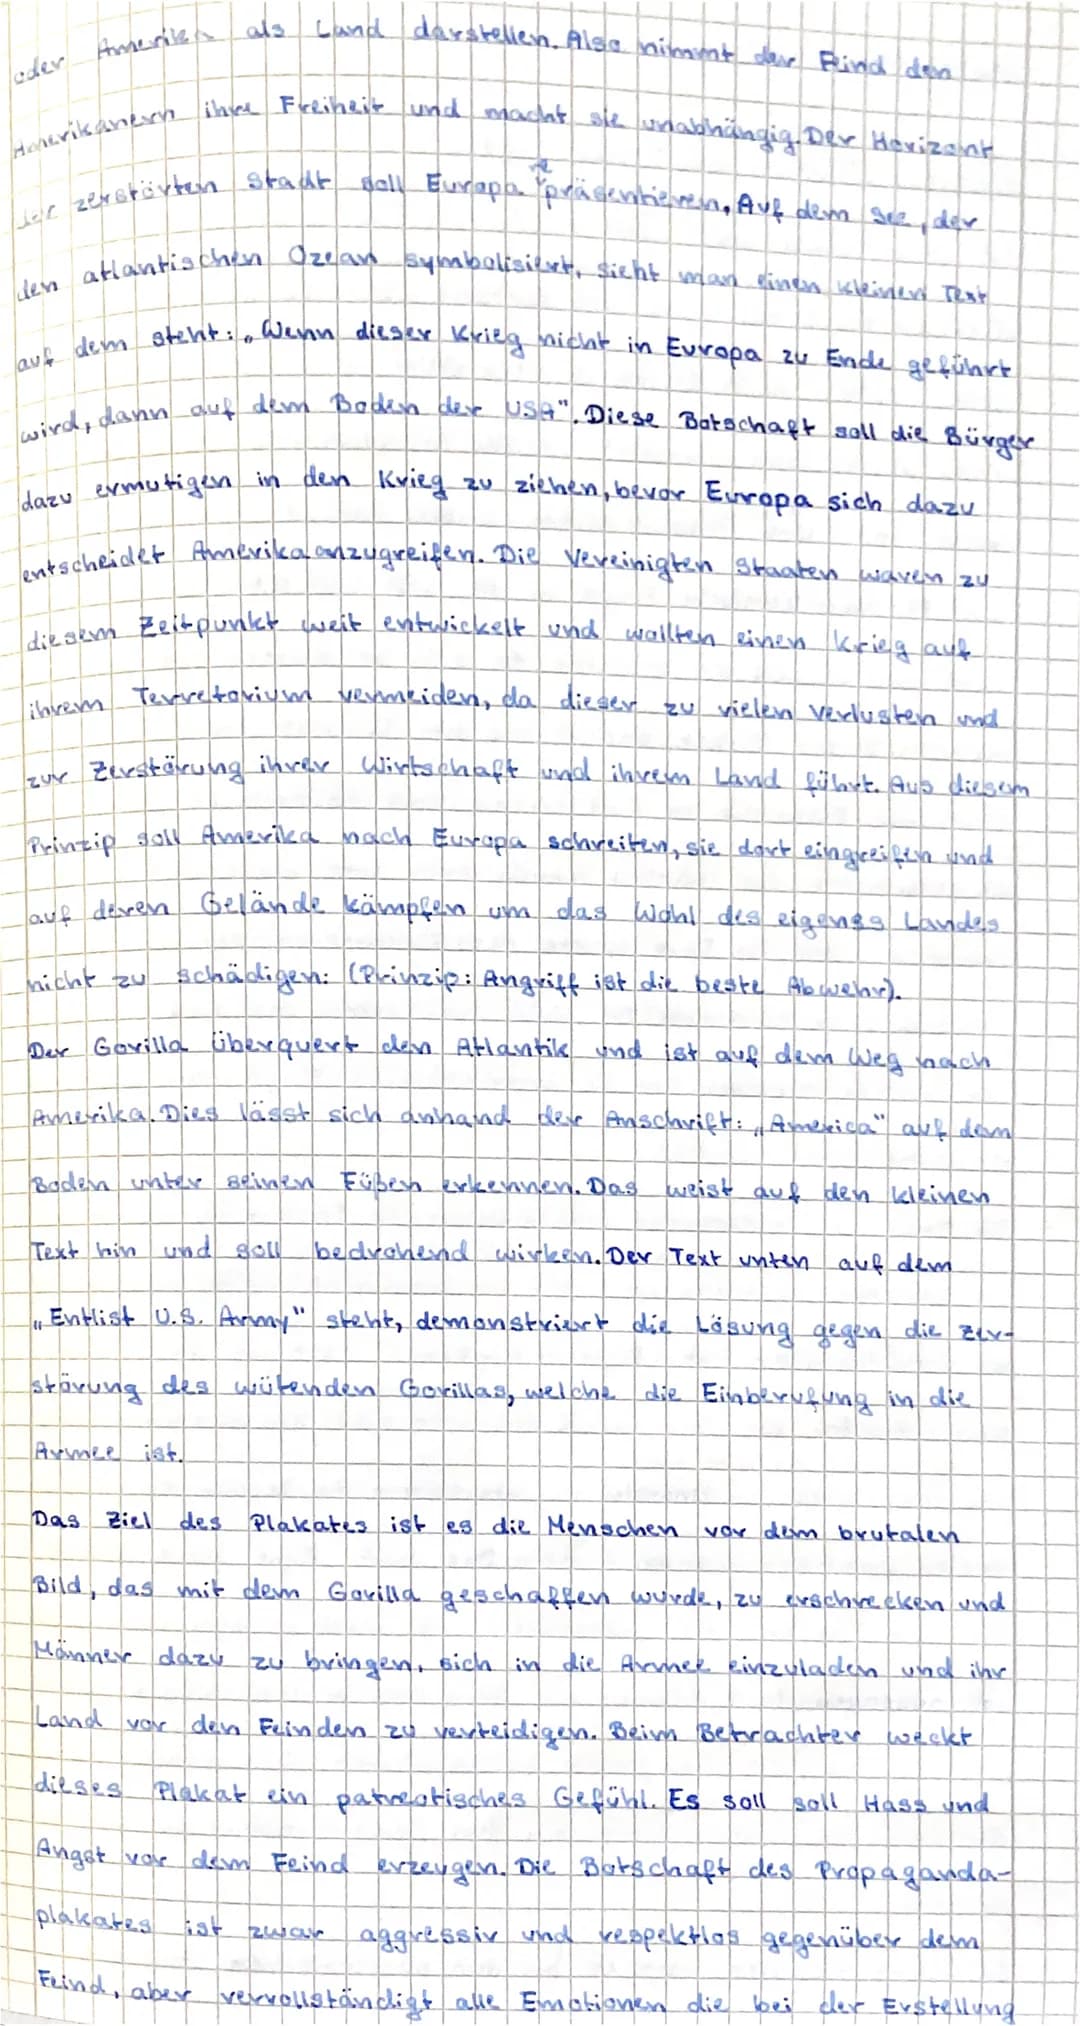 oder Amerika als Land darstellen. Also nimmt der Feind den
Amerikanern ihre Freiheit und macht sie unabhängig. Der Horizont
der zerstörten Stadt soll Europa repräsentieren. Auf dem See, der
den atlantischen Ozean symbolisiert, sieht man einen kleinen Text
auf dem steht: „Wenn dieser Krieg nicht in Europa zu Ende geführt
wird, dann auf dem Boden der USA". Diese Botschaft soll die Bürger
dazu ermutigen in den Krieg zu ziehen, bevor Europa sich dazu
entscheidet Amerika anzugreifen. Die Vereinigten Staaten waren zu
diesem Zeitpunkt weit entwickelt und wollten einen Krieg auf
ihrem Terretorium vermeiden, da dieser zu vielen Verlusten und
zur Zerstörung ihrer Wirtschaft und ihrem Land führt. Aus diesem
Prinzip soll Amerika nach Europa schreiten, sie dort eingreifen und
auf deren Gelände kämpfen um das Wohl des eigenes Landes
nicht zu schädigen: (Prinzip: Angriff ist die beste Abwehr).
Der Gorilla überquert den Atlantik und ist auf dem Weg nach
Amerika. Dies lässt sich anhand der Anschrift: „America" auf dem
Boden unter seinen Füßen erkennen. Das weist auf den kleinen
Text hin und soll bedrohend wirken. Der Text unten auf dem
„Entlist U.S. Army" steht, demonstriert die Lösung gegen die Zer-
störung des wütenden Gorillas, welche die Einberufung in die
Armee ist.
Das Ziel des Plakates ist es die Menschen vor dem brutalen
Bild, das mit dem Gorilla geschaffen wurde, zu erschrecken und
Männer dazu zu bringen, sich in die Armee einzuladen und ihr
Land vor den Feinden zu verteidigen. Beim Betrachter weckt
dieses Plakat ein patreotisches Gefühl. Es soll soll Hass und
Angst vor dem Feind erzeugen. Die Botschaft des Propaganda-
plakates ist zwar aggressiv und respektlos gegenüber dem
Feind, aber vervollständigt alle Emotionen die bei der Erstellung